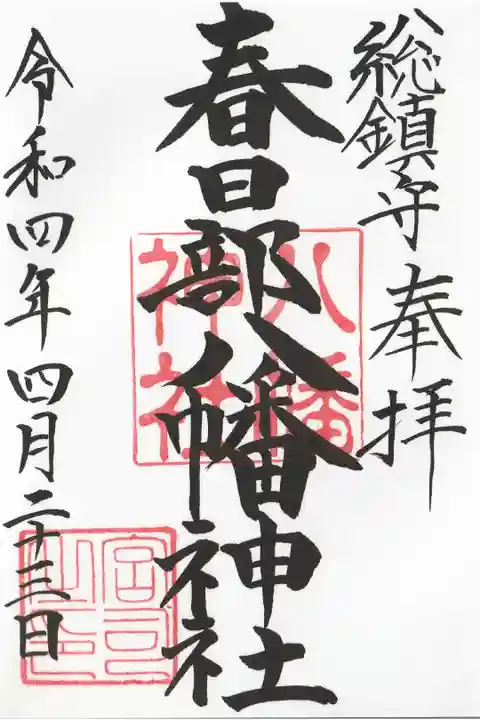 総鎮守 奉拝
春日部八幡神社
八幡
神社
令和四年四月二十三日
宮司之印